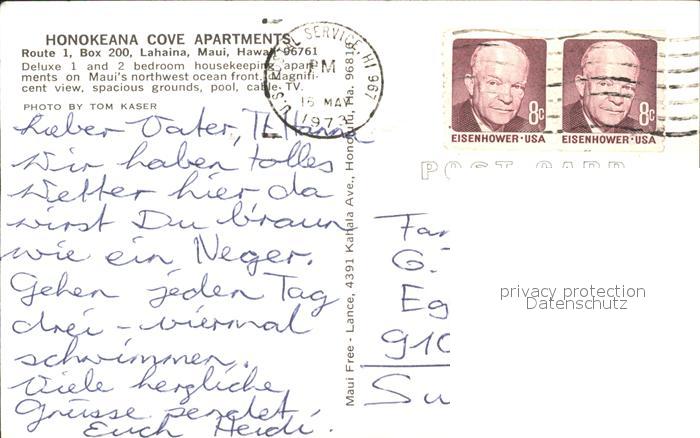 HONOKEANA COVE APARTMENTS
Route 1, Box 200, Lahaina, Maui, Hawaii 96761
Deluxe 1 and 2 bedroom housekeeping apart-
ments on Maui's northwest ocean front. Magnifi-
cent view, spacious grounds, pool, cable-TV.
PHOTO BY TOM KASER
Lieber Vater,
Wir haben tolles
Wetter hier da
wirst Du braun
wie ein Neger.
Gehen jeden Tag
drei-viermal
schwimmen.
Viele herzliche
Grüsse sendet
Euch Heidi.
Maui Free-Lance, 4391 Kahala Ave., Honolulu, Ha. 96816
U.S. POSTAL SERVICE, HI 967
PM
16 MAY
1973
8c
EISENHOWER·USA
8c
EISENHOWER·USA
POST CARD
Fa
G.
Eg
910
Su
privacy protection
Datenschutz